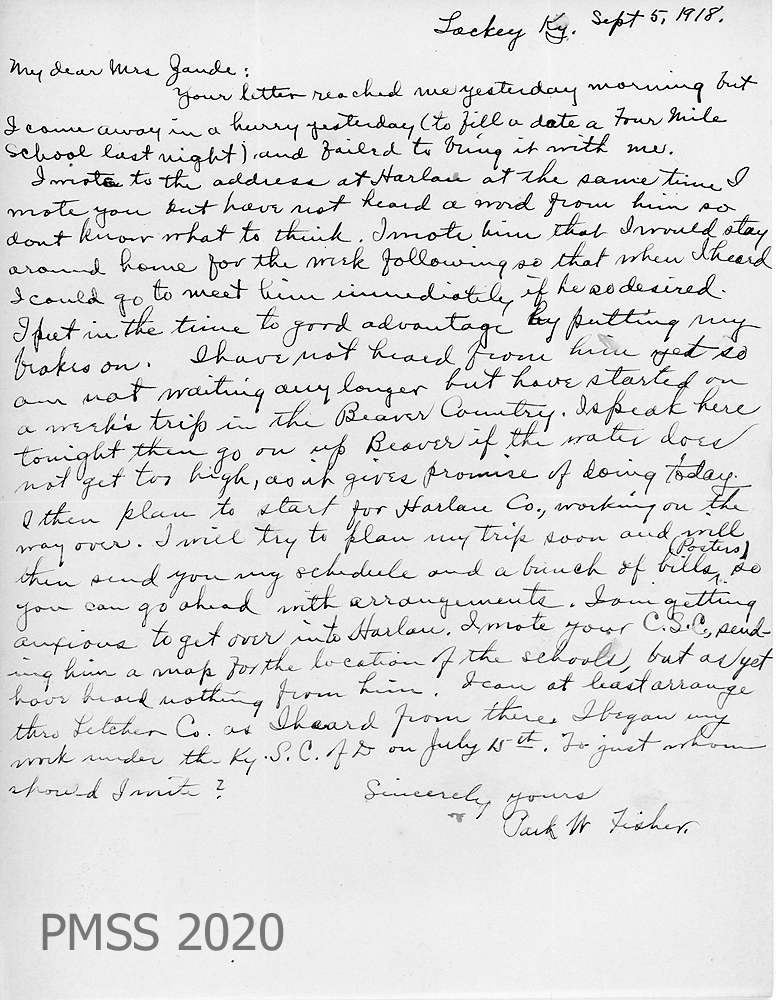 Lackey Ky. Sept 5, 1918.
My dear Mrs Zande:
Your letter reached me yesterday morning but
I came away in a hurry yesterday (to fill a date a Four Mile
School last night) and failed to bring it with me.
I wrote to the address at Harlan at the same time I
wrote you but have not heard a word from him so
dont know what to think. I wrote him that I would stay
around home for the week following so that when I heard
I could go to meet him immediately if he so desired.
I put in the time to good advantage by putting my
brakes on. I have not heard from him yet so
am not waiting any longer but have started on
a week's trip in the Beaver Country. I speak here
tonight then go on up Beaver if the water does
not get too high, as it gives promise of doing today.
I then plan to start for Harlan Co., working on the
way over. I will try to plan my trip soon and will
then send you my schedule and a bunch of bills (Posters), so
you can go ahead with arrangements. I am getting
anxious to get over into Harlan. I wrote your C.S.C., send-
ing him a map for the location of the schools, but as yet
have heard nothing from him. I can at least arrange
thro Letcher Co. as I heard from there. I began my
work under the Ky. S. C. of D on July 15th. To just whom
should I write?
Sincerely yours
Park W Fisher.
PMSS 2020